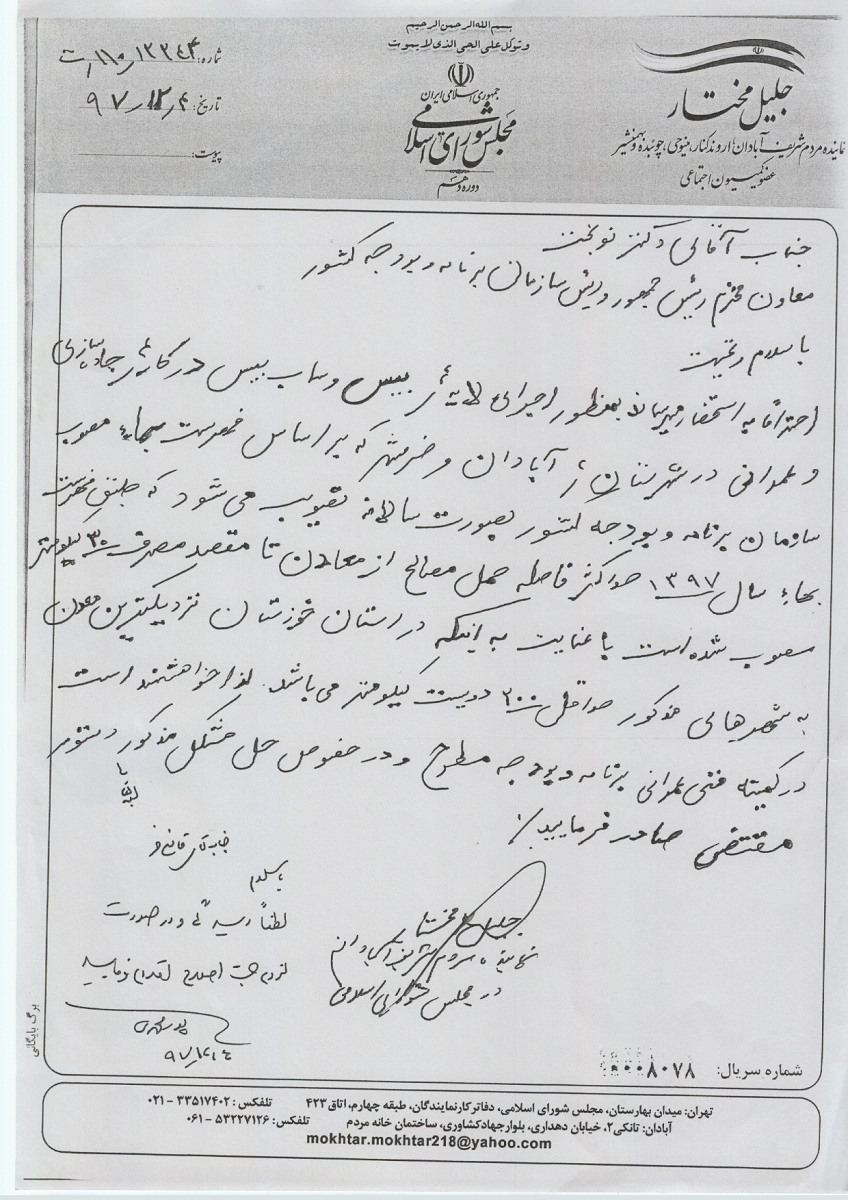 بسم الله الرحمن الرحیم
و توکل علی الحی الذی لا یموت
جمهوری اسلامی ایران
مجلس شورای اسلامی
دوره دهم
جلیل مختار
نماینده مردم شریف آبادان، اروندکنار، مینوحی، چوئبده و بهمنشیر
عضو کمیسیون اجتماعی
شماره:
تاریخ: ۹۷/۱۲/۴
پیوست:
جناب آقای دکتر نوبخت
معاون محترم رئیس جمهور و رئیس سازمان برنامه و بودجه کشور
با سلام و تحیت
احتراماً به استحضار میرساند بمنظور اجرای لایه های بیس و ساب بیس در کارهای جاده سازی
و عمرانی در شهرستان های آبادان و خرمشهر که بر اساس فهرست بهاء مصوب
سازمان برنامه و بودجه کشور بصورت سالانه تصویب می شود که طبق فهرست
بهاء سال ۱۳۹۷ حداکثر فاصله حمل مصالح از معادن تا مقصد مصرف ۳۰ کیلومتر
مصوب شده است با عنایت به اینکه در استان خوزستان نزدیکترین معدن
به شهرهای مذکور حداقل ۲۰۰ دویست کیلومتر می باشد. لذا خواهشمند است
در کمیته فنی عمرانی برنامه و بودجه مطرح و در خصوص حل مشکل مذکور دستور
مقتضی صادر فرمایید./
جلیل مختار
نماینده مردم شریف آبادان
در مجلس شورای اسلامی
جناب آقای
با سلام
لطفاً رسیدگی و در صورت
لزوم جهت اصلاح اقدام فرمایید
۹۷/۱۲/۴
برگ بایگانی
شماره سریال: ۰۰۰۸۰۷۸
تهران: میدان بهارستان، مجلس شورای اسلامی، دفاتر کار نمایندگان، طبقه چهارم، اتاق ۴۲۳ تلفکس: ۳۳۵۱۷۴۰۲ - ۰۲۱
آبادان: تانکی۲، خیابان دهداری، بلوار جهاد کشاوری، ساختمان خانه مردم تلفکس: ۵۳۲۲۷۱۲۶ - ۰۶۱
mokhtar.mokhtar218@yahoo.com